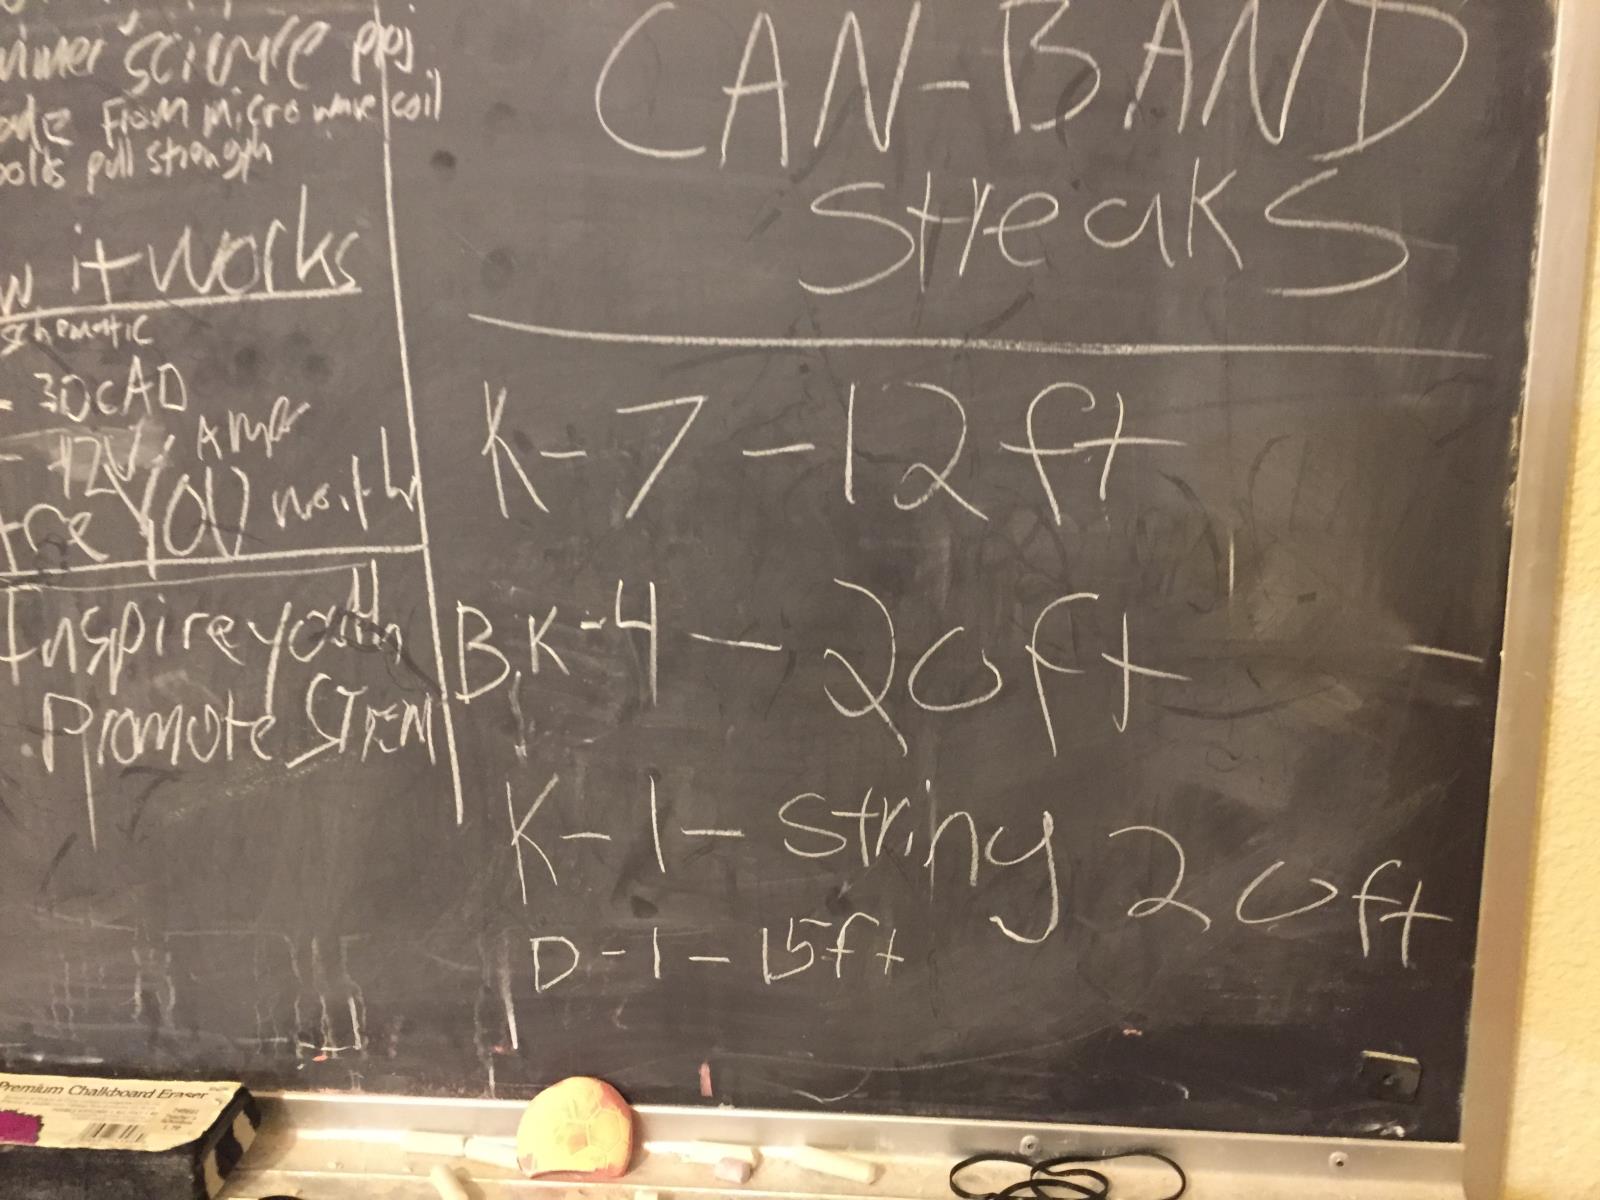 science proj.
from microwave coil
pull strength
it works
schematic
- 3D CAD
- 12V, Amp
YOU
Inspire youth
Promote STEM
CAN-BAND
streaks
K-7-12ft
B.K-4-20ft
K-1-string 20ft
D-1-15ft
Premium Chalkboard Eraser